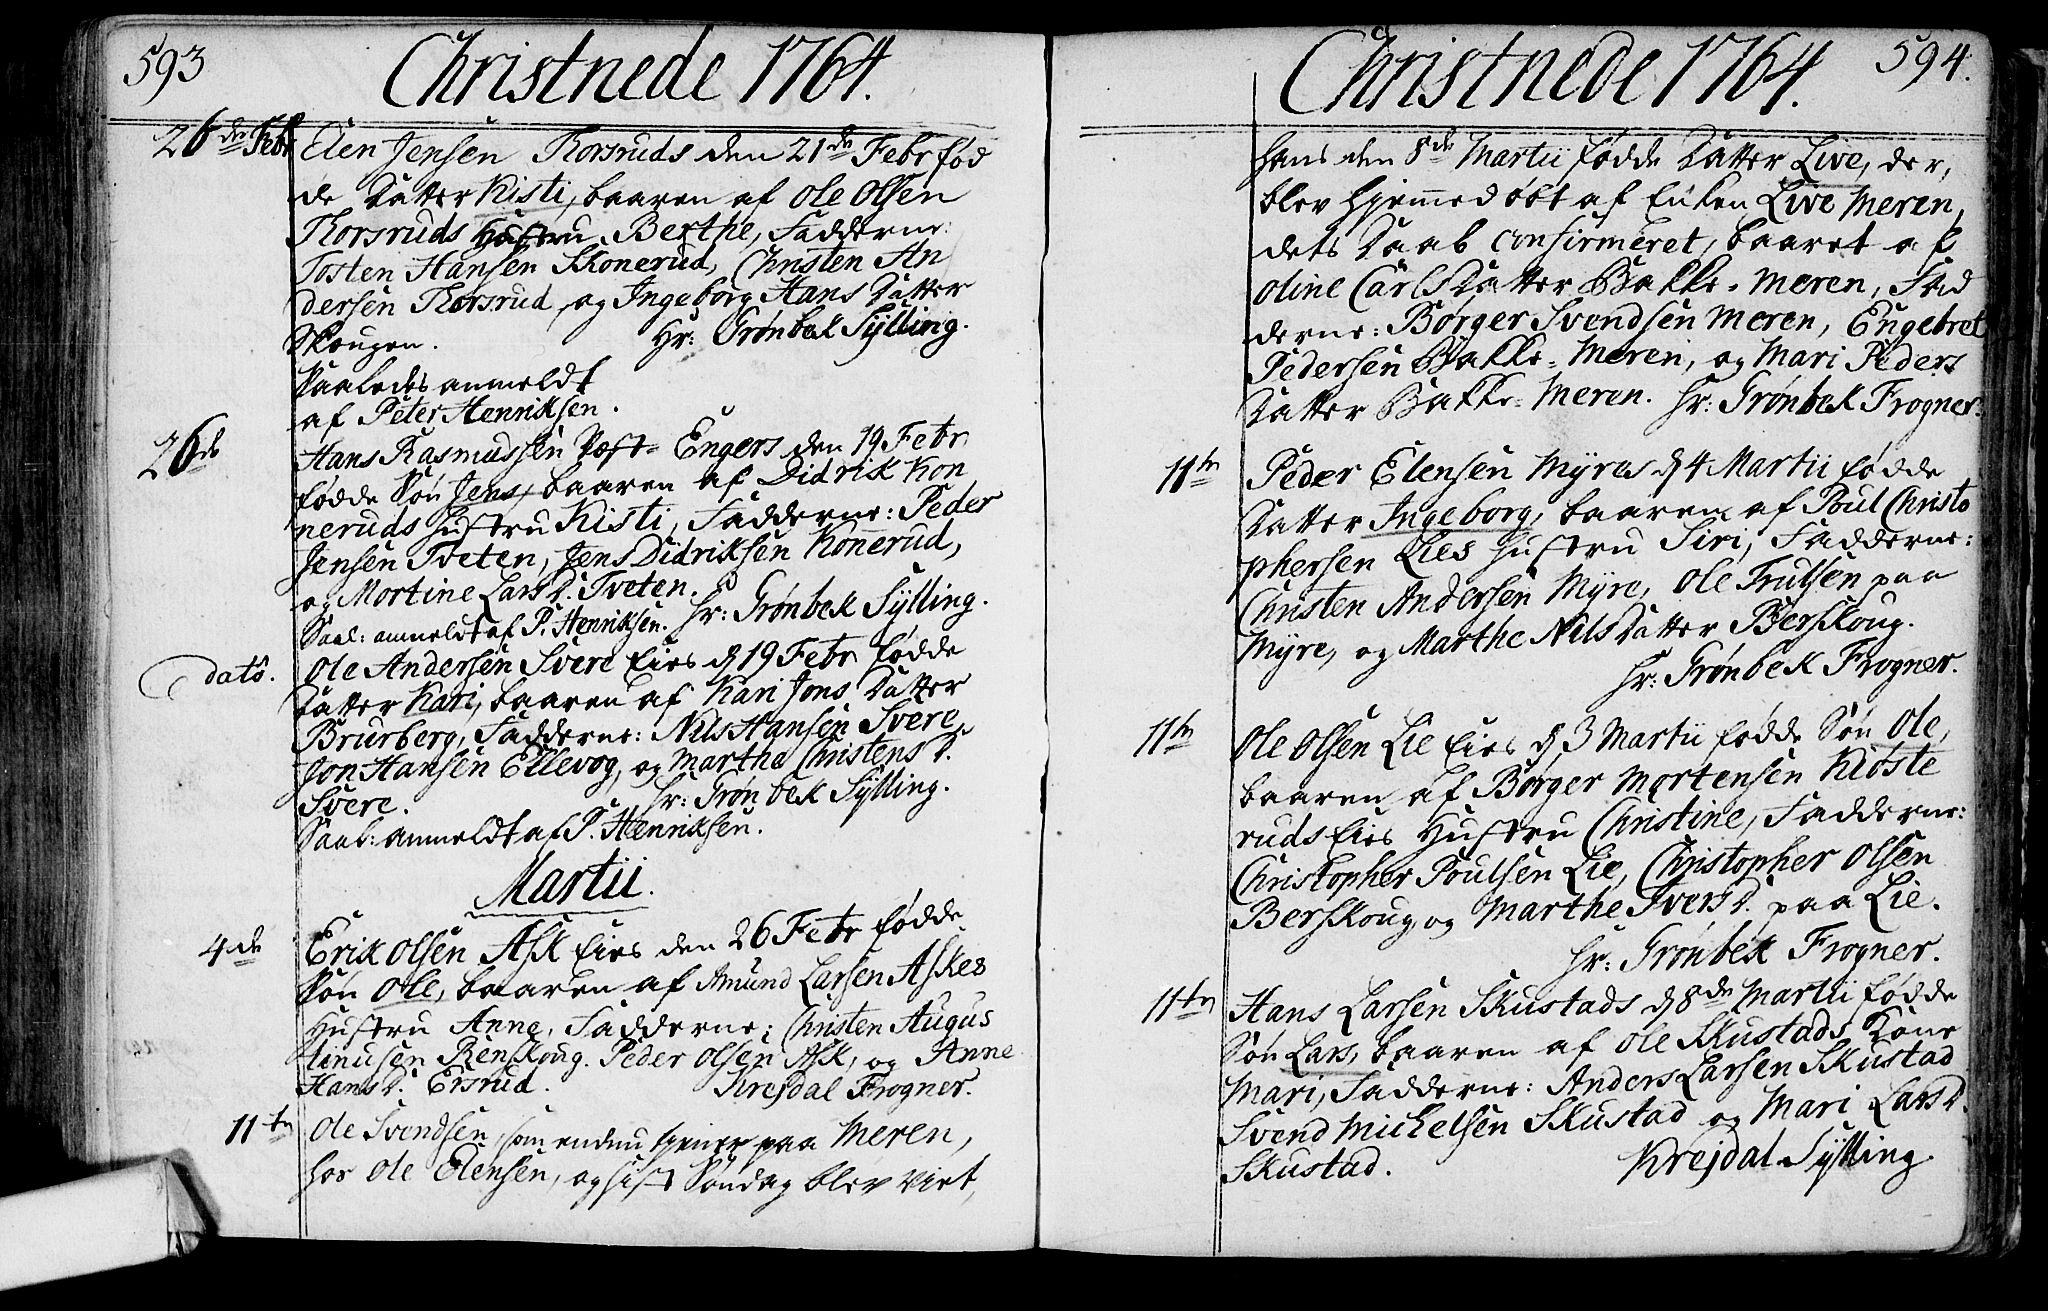 593
Christnede 1764.
26 de Febr Elen Jensen Korsruds den 21 de Febr fød
de Datter Kisti, baaren af Ole Olsen
Korsruds Hustru Berthe, Fadderne:
Tosten Hansen Skonerud, Christen An
dersen Korsrud, og Ingeborg Hans Datter
Skougen. Hr: Grønbek Sylling.
Saaledes anmeldt
af Peter Henriksen.
26 de Hans Rasmussen Engers den 19 Febr
fødde Søn Jens, baaren af Didrik Kon
neruds Hustru Kisti, Fadderne: Peder
Jensen Tveten, Jens Didriksen Konerud,
og Mortine Lars D. Tveten.
Saal: anmeldt af P. Henriksen. Hr: Grønbek Sylling.
dato. Ole Andersen Svere Eies d 19 Febr fødde
Datter Kari, baaren af Kari Jons Datter
Brurberg, Fadderne: Nils Hansen Svere,
Jon Hansen Ellevog, og Marthe Christens D.
Svere. Hr: Grønbek Sylling.
Saal: anmeldt af P. Henriksen.
Martii.
4 de Erik Olsen Ask Eies den 26 Febr fødde
Søn Ole, baaren af Amund Larsen Askes
Hustru Anne, Fadderne: Christen Augus
tinusen Renskoug. Peder Olsen Ask, og Anne
Hans D. Ersrud. Krejdal Frogner.
11 tn Ole Svendsen, som endnu tjener paa Meren,
hos Ole Elensen, og sist Søndag blev viet,
594.
Christnede 1764.
hans den 8 de Martii fødde Datter Live, der,
blev hjemmedøbt af Enken Live Meren,
dets Daab confirmeret, baaret af
Oline Carls Datter Bakke-Meren, Fad
derne: Børger Svendsen Meren, Engebret
Pedersen Bakke-Meren, og Mari Peders
Datter Bakke-Meren. Hr: Grønbek Frogner.
11 tn Peder Elensen Myres d 4 Martii fødde
Datter Ingeborg, baaren af Poul Christo
phersen Lies Hustru Siri, Fadderne:
Christen Andersen Myre, Ole Trulsen paa
Myre, og Marthe Nils Datter Berskoug.
Hr: Grønbek Frogner.
11 tn Ole Olsen Lie Eies d 3 Martii fødde Søn Ole,
baaren af Børger Mortensen Kløste
ruds Eies Hustru Christine, Fadderne:
Christopher Poulsen Lie, Christopher Olsen
Berskoug, og Marthe Ivers D. paa Lie.
Hr: Grønbek Frogner.
11 tn Hans Larsen Skustads d 8 de Martii fødde
Søn Lars, baaren af Ole Skustads Kone
Mari, Fadderne: Anders Larsen Skustad
Svend Michelsen Skustad og Mari Lars D.
Skustad. Krejdal Sylling.